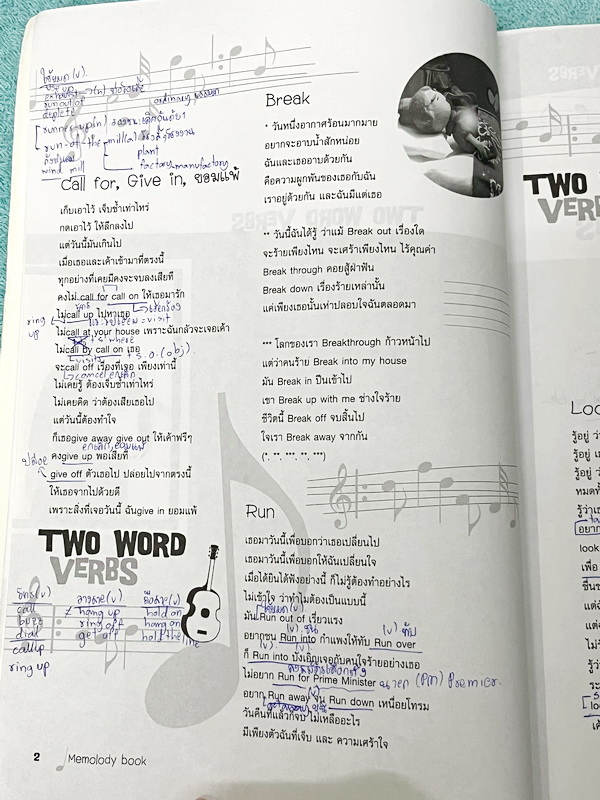 ใช้หมด (v).
use up
exhaust
run out of
deplete
ordinary ธรรมดา
runner-up(n) รองชนะเลิศอันดับ 1
run-of-the-mill(a)
plant
factory manufactory
wind mill
Call for, Give in, ยอมแพ้
เก็บเอาไว้ เจ็บช้ำเท่าไหร่
กดเอาไว้ ให้ลึกลงไป
แต่วันนี้มันเกินไป
เมื่อเธอและเค้าเข้ามาที่ตรงนี้
ทุกอย่างที่เคยมีคงจะจบลงเสียที
คงไม่ call for call on ให้เธอมารัก
ไม่call up ไปหาเธอ
ring up
= visit
ไม่call at your house เพราะฉันกลัวจะเจอเค้า
+ s. where
ไม่call by call on เธอ
visit + s.o. (obj).
จะcall off เรื่องที่เจอ เพียงเท่านี้
cancel ยกเลิก
ไม่เคยรู้ ต้องเจ็บช้ำเท่าไหร่
ไม่เคยคิด ว่าต้องเสียเธอไป
แต่วันนี้ต้องทำใจ
ก็เธอgive away give out ให้เค้าฟรีๆ
ยกเลิก, ยอมแพ้
คงgive up พอเสียที
ปล่อย
give off ตัวเธอไป ปล่อยไปจากตรงนี้
ให้เธอจากไปด้วยดี
เพราะสิ่งที่เจอวันนี้ ฉันgive in ยอมแพ้
TWO WORD
VERBS
โทร(v) วางสาย(v) ถือสาย(v)
call ≠ hang up hold on
buzz ring off hang on
dial get off hold the line
call up
ring up
2 Memolody book
Break
* วันหนึ่งอากาศร้อนมากมาย
อยากจะอาบน้ำสักหน่อย
ฉันและเธออาบด้วยกัน
คือความผูกพันของเธอกับฉัน
เราอยู่ด้วยกัน และฉันมีแต่เธอ
** วันนี้ฉันได้รู้ ว่าแม้ Break out เรื่องใด
จะร้ายเพียงไหน จะเศร้าเพียงไหน ไร้คุณค่า
Break through คอยสู้ฝ่าฟัน
Break down เรื่องร้ายเหล่านั้น
แค่เพียงเธอนั้นเห่าปลอบใจฉันตลอดมา
*** โลกของเรา Breakthrough ก้าวหน้าไป
แต่ว่าคนร้าย Break into my house
มัน Break in ปีนเข้าไป
เขา Break up with me ช่างใจร้าย
ชีวิตนี้ Break off จบสิ้นไป
ใจเรา Break away จากกัน
(*, **, ***, **, ***)
Run
เธอมาวันนี้เพื่อบอกว่าเธอเปลี่ยนไป
เธอมาวันนี้เพื่อบอกให้ฉันเปลี่ยนใจ
เมื่อได้ยินได้ฟังอย่างนี้ ก็ไม่รู้ต้องทำอย่างไร
ไม่เข้าใจ ว่าทำไมต้องเป็นแบบนี้
ใช้หมด(v)
มัน Run out of เรี่ยวแรง
(v). ชน (v). ทับ
อยากชน Run into กำแพงให้ทับ Run over
ก็ Run into บังเอิญเจอกับคนใจร้ายอย่างเธอ
ไม่อยาก Run for Prime Minister นายก (PM) Premier.
อยาก Run away จน Run down เหนื่อยโทรม
วันคืนที่แล้วก็จบ ไม่เหลืออะไร
มีเพียงตัวฉันที่เจ็บ และ ความเศร้าใจ
TWO
VERB